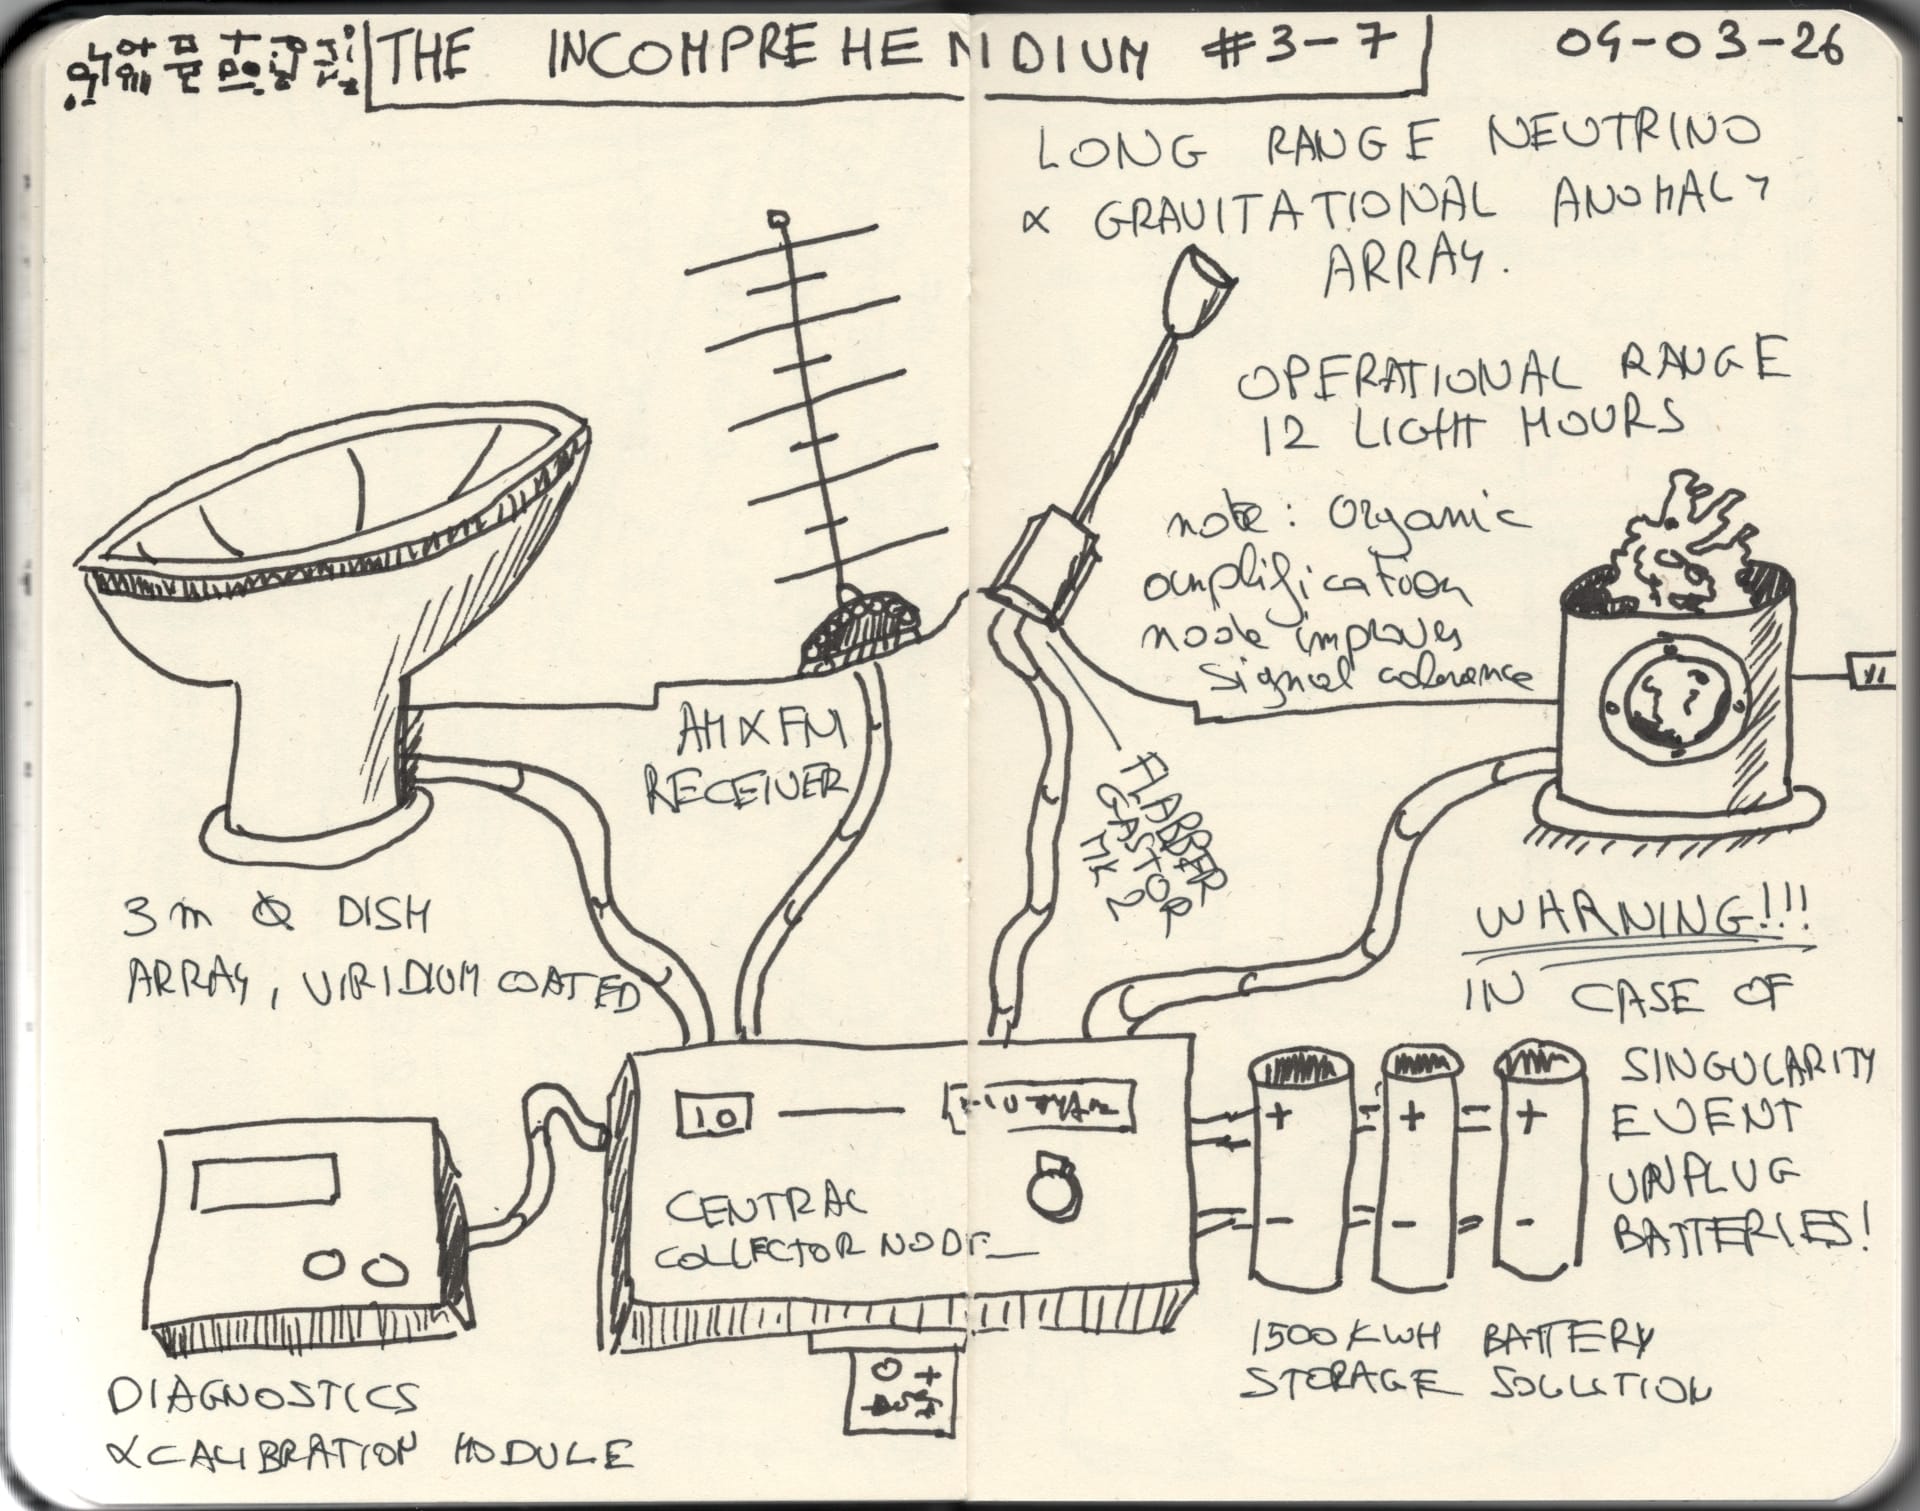 THE INCOMPREHENDIUM #3-7
09-03-26
LONG RANGE NEUTRINO
& GRAVITATIONAL ANOMALY
ARRAY.
OPERATIONAL RANGE
12 LIGHT HOURS
note: Organic
amplification
node improves
signal coherence
AM & FM
RECEIVER
FLABBER
GASTOR
MK 2
3 m Ø DISH
ARRAY, VIRIDIUM COATED
WARNING!!!
IN CASE OF
SINGULARITY
EVENT
UNPLUG
BATTERIES!
10
CENTRAL
COLLECTOR NODE
+ + +
- - -
1500 KWH BATTERY
STORAGE SOLUTION
DIAGNOSTICS
& CALIBRATION MODULE